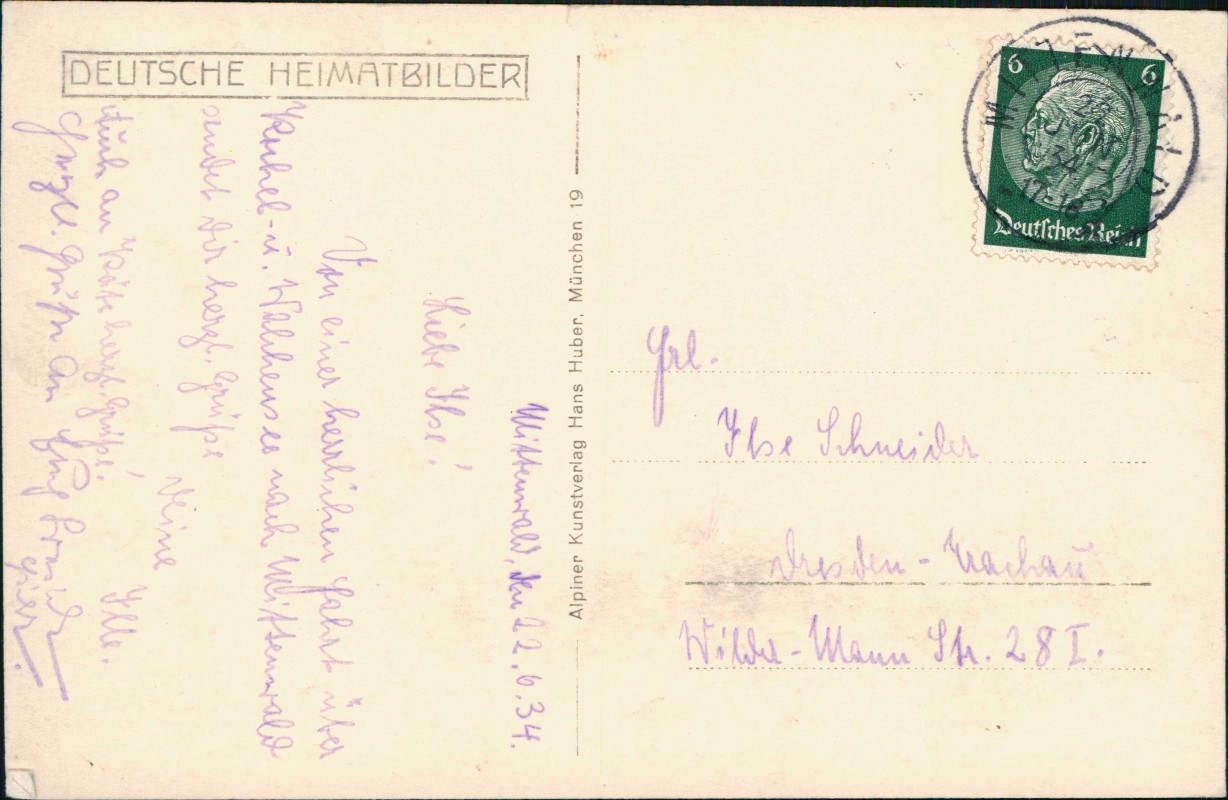 DEUTSCHE HEIMATBILDER
Mittenwald, den 22.6.34.
Liebe Ilse!
Von einer herrlichen Fahrt über
Kochel- u. Walchensee nach Mittenwald
sendet Dir herzl. Grüße
Deine
Ille.
Auch an Käte herzl. Grüße!
Grüße an
Alpiner Kunstverlag Hans Huber, München 19
6 6
Deutsches Reich
MITTENWALD
22
JUN
34
17-18
Frl.
Ilse Schneider
Dresden - Trachau
Wilder-Mann Str. 28 I.